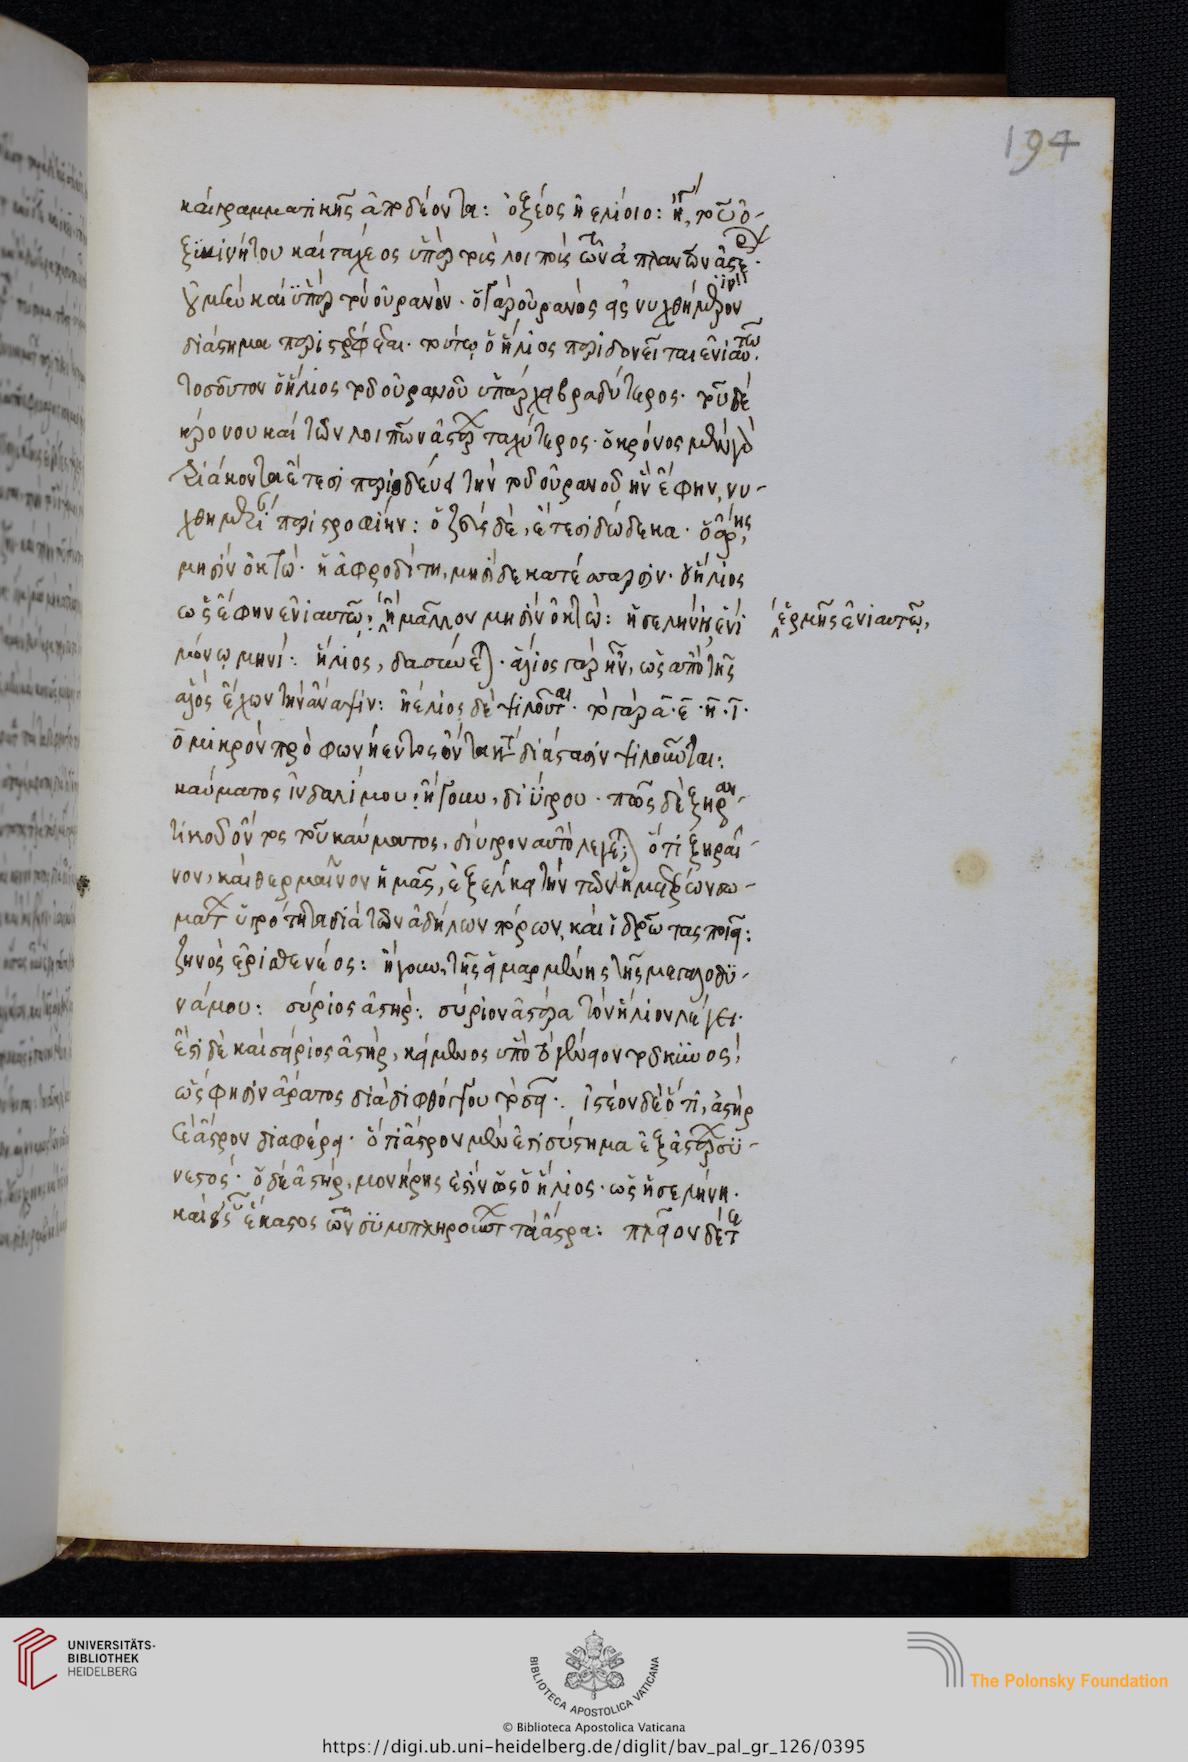 194
καὶ γραμματικῆς ἀποδέοντα: ὀξέος ἠελίοιο: ἤ, τοῦ ὀ-
ξυκινήτου καὶ ταχέος ὑπὲρ τοὺς λοιποὺς τῶν ἀπλανῶν
καὶ ὑπὲρ τὸν οὐρανόν. ὁ γὰρ οὐρανὸς εἰς νυχθήμερον
διάστημα περιστρέφεται. τοῦτο ὁ ἥλιος περιδονεῖται ἐνιαυτῶ.
τοσοῦτον ὁ ἥλιος τοῦ οὐρανοῦ ὑπάρχει βραδύτερος. τοῦ δὲ
κρόνου καὶ τῶν λοιπῶν ἀστέρων ταχύτερος. ὁ κρόνος μὲν γὰρ
τριάκοντα ἔτεσι περιοδεύει τὴν τοῦ οὐρανοῦ ἣν ἔφην, νυ-
χθημέροις περιστροφὴν: ὁ ζεὺς δὲ, ἔτεσι δώδεκα. ὁ ἄρης,
μησὶν ὀκτώ. ἡ ἀφροδίτη, μησὶ δεκατέσσαρσιν. ὁ ἥλιος
ὡς ἔφην ἐνιαυτῶ: ἢ μᾶλλον μησὶν ὀκτώ: ἡ σελήνη, ἑνὶ
ἑρμῆς ἐνιαυτῶ,
μόνω μηνί: ἥλιος, δασύνεται. ἅλιος γὰρ ἦν, ὡς ἀπὸ τῆς
ἁλὸς ἔχων τὴν ἄναψιν: ἠέλιος δὲ ψιλοῦται. τὸ γὰρ α. ε. η. ι.
ο μικρὸν πρὸ φωνήεντος ὄντα κατὰ διάστασιν ψιλοῦνται:
καύματος ἰνδαλίμου: ἤγουν, διύγρου. πῶς δὲ ξηραν-
τικοῦ ὄντος τοῦ καύματος, δίυγρον αὐτὸ λέγει; ὅτι ξηραῖ-
νον, καὶ θερμαῖνον ἡμᾶς, ἐξέλκει τὴν τῶν ἡμετέρων σω-
μάτων ὑγρότητα διὰ τῶν ἀδήλων πόρων, καὶ ἱδρῶτας ποιεῖ:
ζηνὸς ἐρισθενέος: ἤγουν, τῆς εἱμαρμένης τῆς μεγαλοδυ-
νάμου: σείριος ἀστήρ: σείριον ἀστέρα τὸν ἥλιον λέγει.
ἔστι δὲ καὶ σείριος ἀστὴρ, κείμενος ὑπὸ τὸ γένειον τοῦ κυνὸς,
ὥς φησιν ἄρατος διὰ διφθόγγου τὸ σει. ἰστέον δὲ ὅτι, ἀστὴρ
καὶ ἄστρον διαφέρει. ὅτι ἄστρον μὲν ἐστι σύστημα ἐξ ἀστέρων συ-
νεστός. ὁ δὲ ἀστὴρ, μονήρης ἐστὶν ὡς ὁ ἥλιος. ὡς ἡ σελήνη.
καὶ εἷς ἕκαστος τῶν συμπληρούντων τὰ ἄστρα: πλεῖον δέ
UNIVERSITÄTS-
BIBLIOTHEK
HEIDELBERG
BIBLIOTECA APOSTOLICA VATICANA
The Polonsky Foundation
© Biblioteca Apostolica Vaticana
https://digi.ub.uni-heidelberg.de/diglit/bav_pal_gr_126/0395